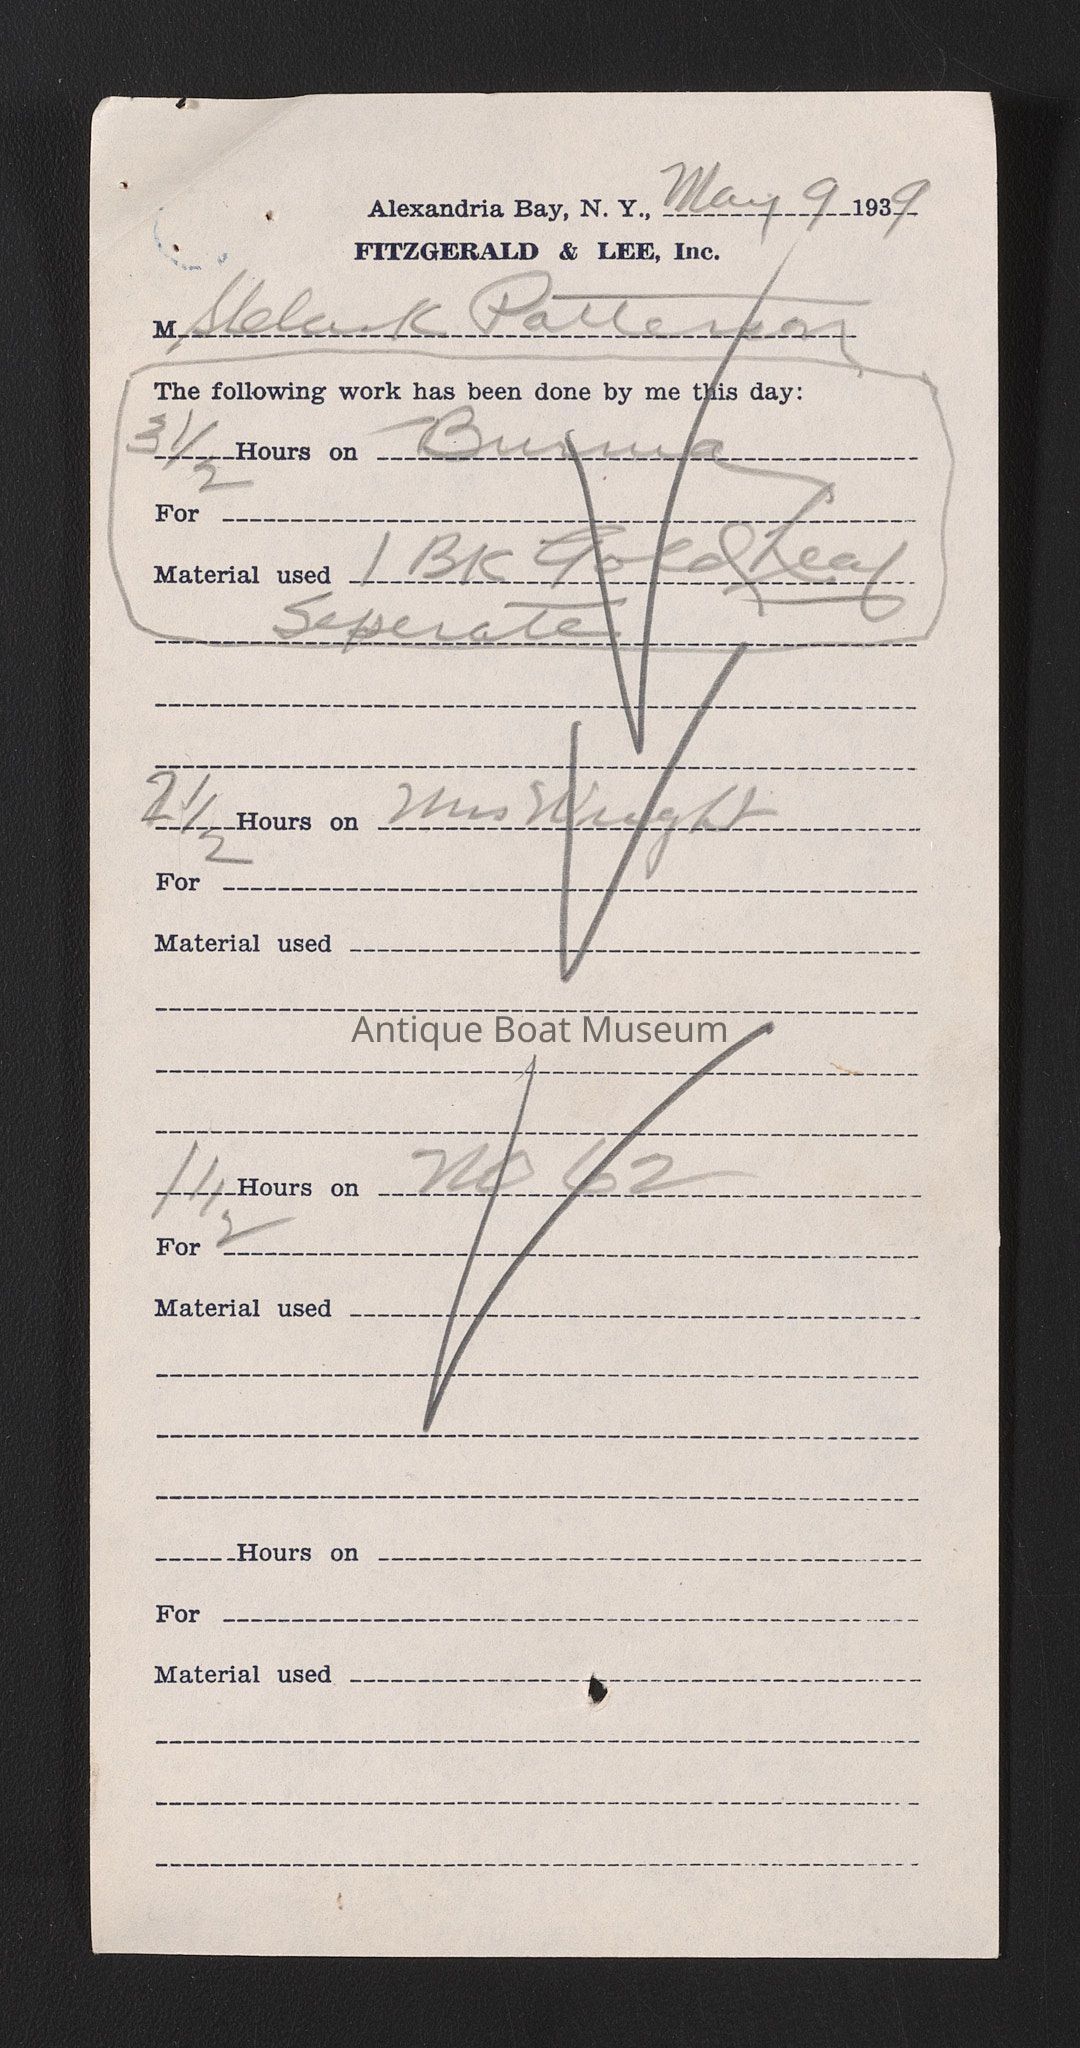 Alexandria Bay, N. Y., May 9 1939
FITZGERALD & LEE, Inc.
M Patterson
The following work has been done by me this day:
3 1/2 Hours on Burma
For
Material used 1 BK Gold Leaf
Seperate
2 1/2 Hours on Mrs Wright
For
Material used
Antique Boat Museum
1 1/2 Hours on No 62
For
Material used
Hours on
For
Material used